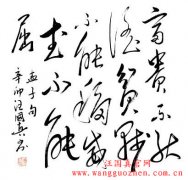 富貴不能
淫貧賤
不能移威
武不能
屈
孟子句
辛卯汪國真書
汪国真官网
www.wangguozhen.com